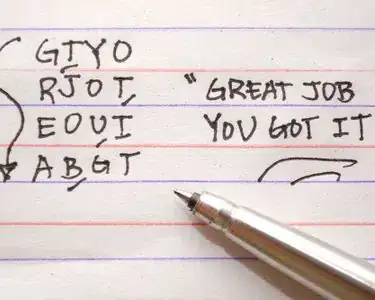 GTYO
RJOT
EOUI
ABGT
"GREAT JOB
YOU GOT IT